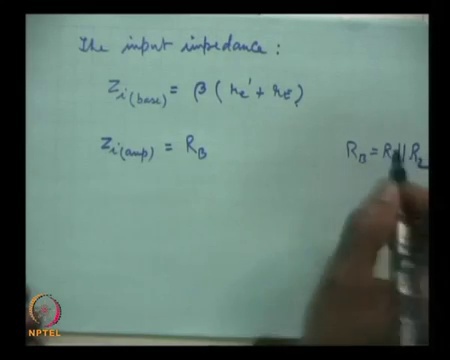 The input impedance :
Zi(base) = β ( re' + rE )
Zi(amp) = RB
RB = R1 || R2
NPTEL